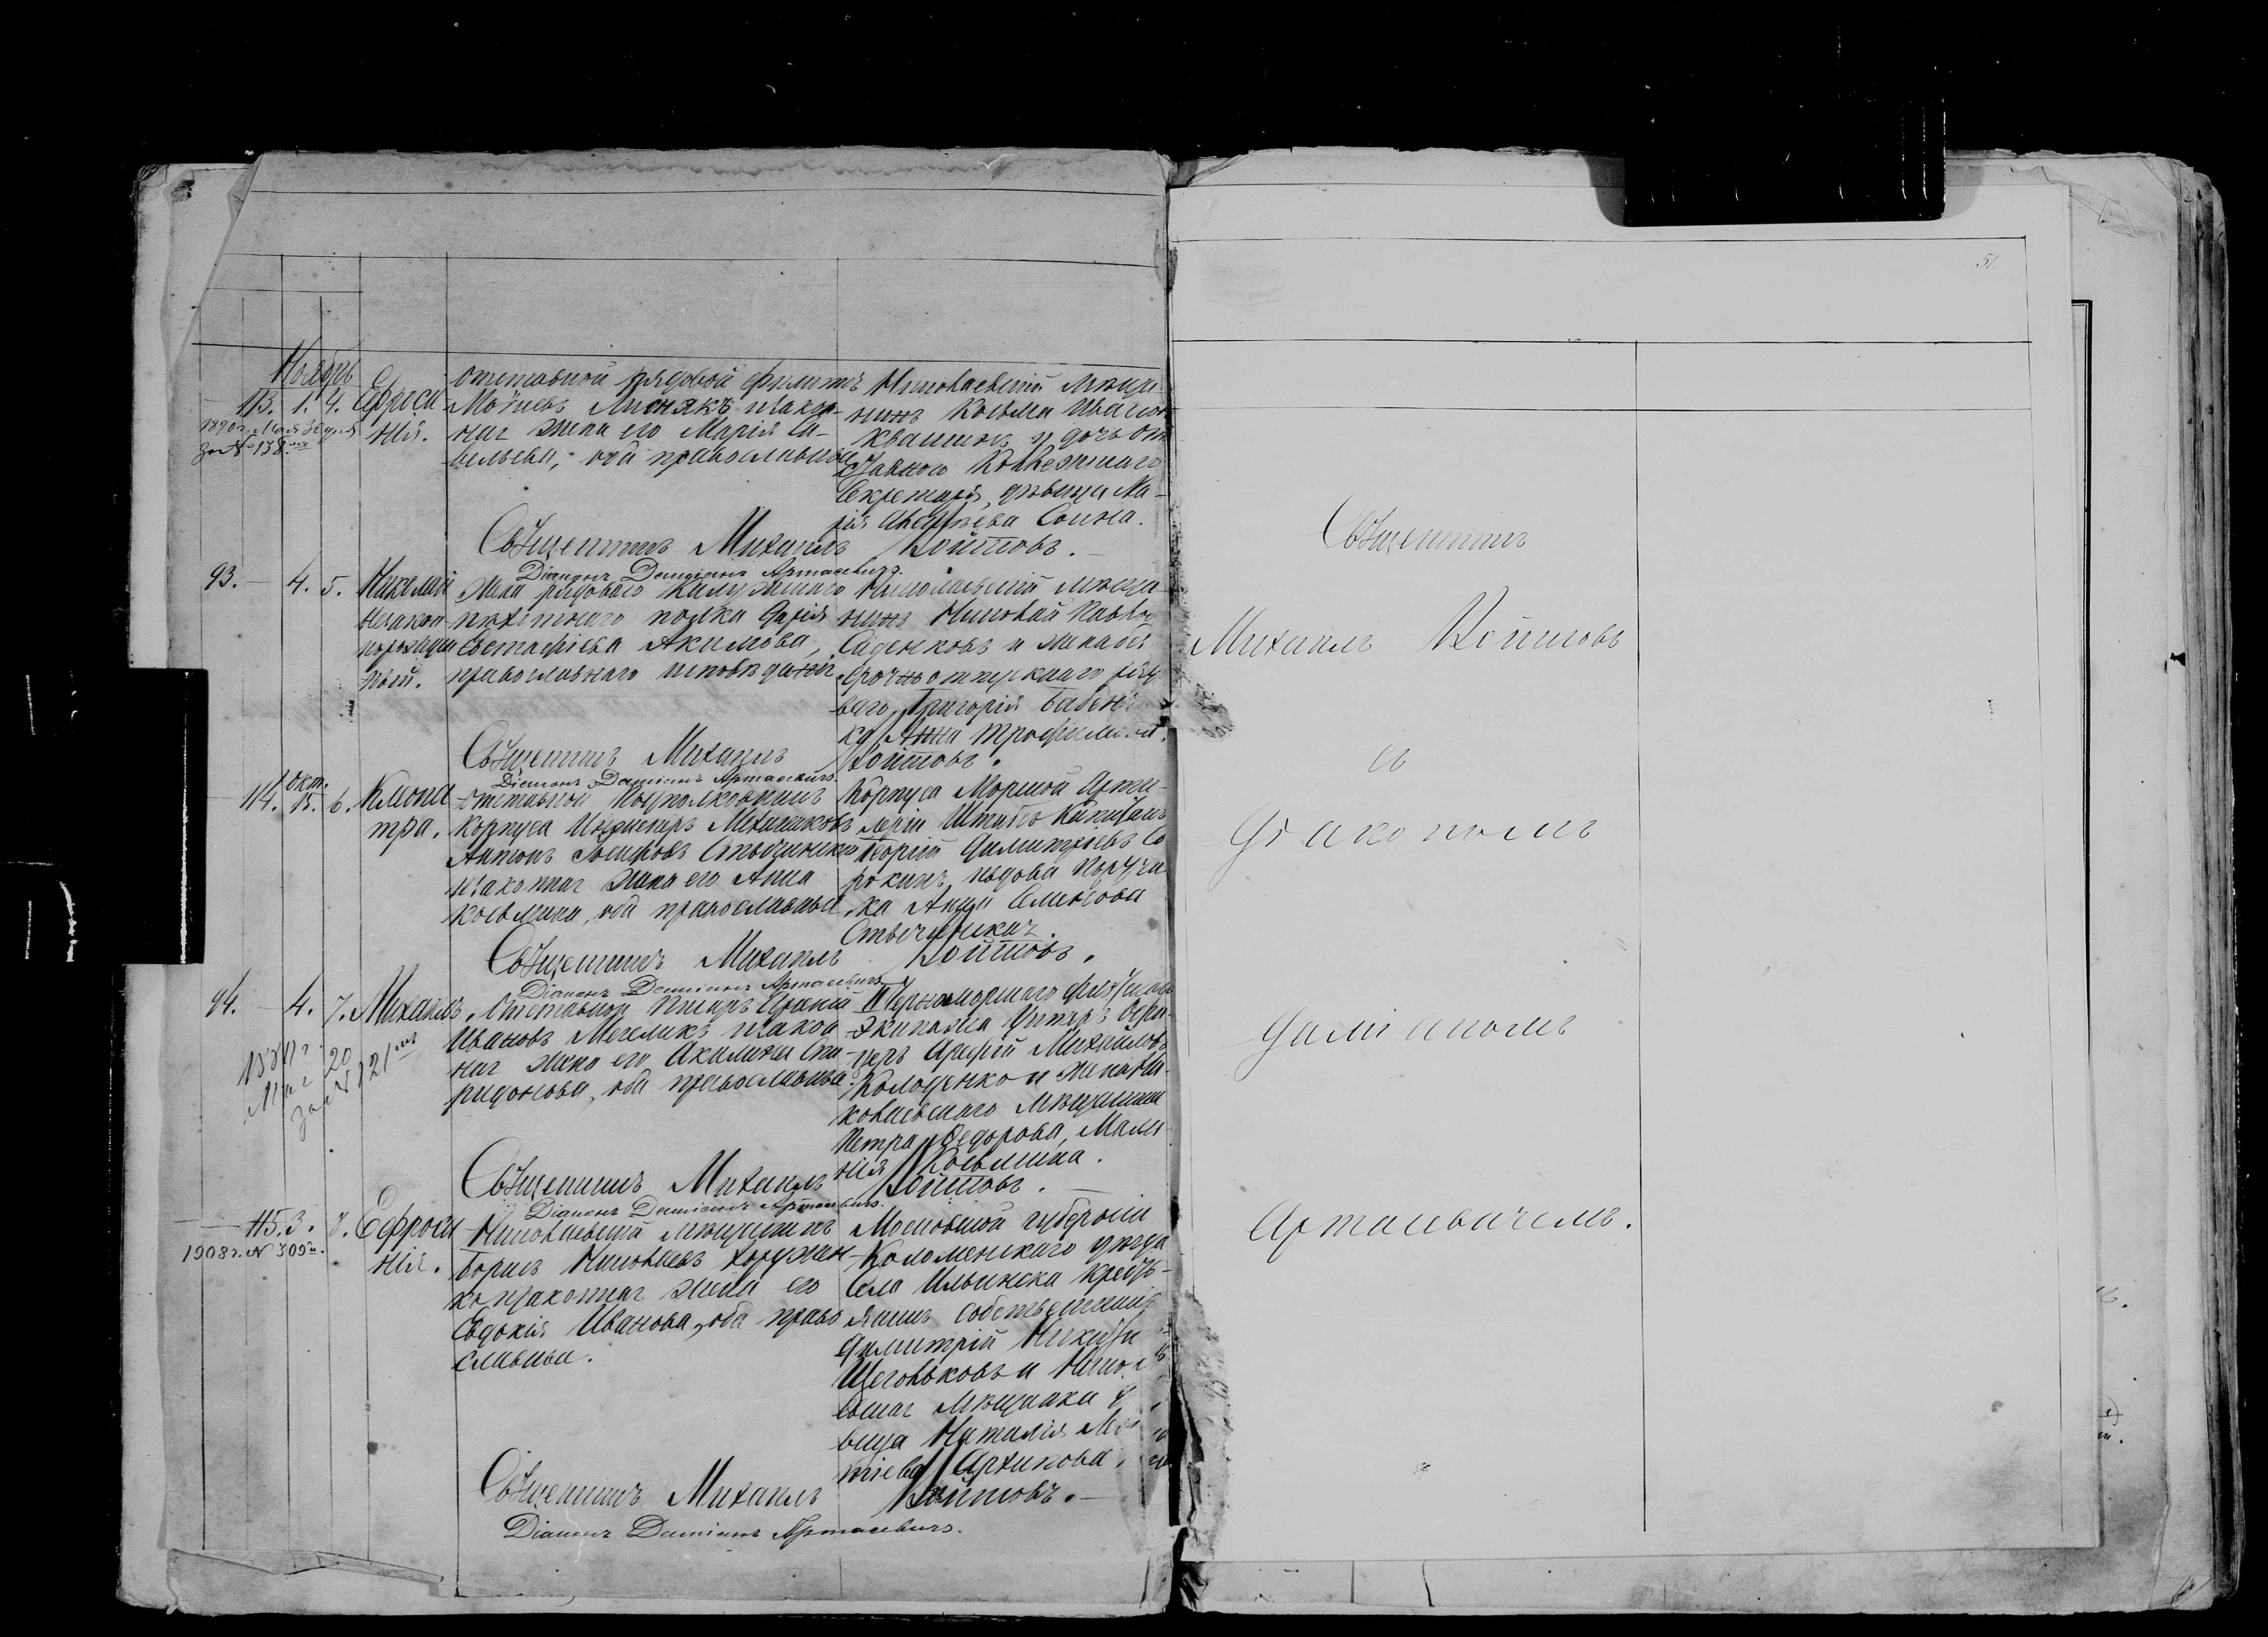 51.
Ноябрь
113. 1. 4. Ефроси
нія.
1890 г. Мая 30 дня
за № 138.
отставной рядовой Филиппъ
Моѵсеевъ Лиснякъ и закон-
ная жена его Марія Са-
вельева, оба православные
Николаевскій мѣща
нинъ Косьма Ивановъ
Квашинъ и дочь от
ставного Коллежскаго
Секретаря, дѣвица Ма-
рія Андреева Соина.
Священникъ Михаилъ Войтовъ.
Діаконъ Даміанъ Арташевичъ.
93. – 4. 5. Николай
незакон
норожден
ный.
Жена рядового Калужскаго
пѣхотнаго полка Дарія
Евстафіева Акимова,
православнаго исповѣданія.
Николаевскій мѣща
нинъ Николай Павлов
Саденковъ и жена без
срочноотпускнаго рядо
ваго Григорія Бабенч
ка Анна Трофимова.
Священникъ Михаилъ Войтовъ.
Діаконъ Даміанъ Арташевичъ.
114. Окт. 13. 6. Клеопа
тра.
Отставной Подполковникъ
Корпуса Инженеръ Механиковъ
Антонъ Іосифовъ Стычинскій
и законная жена его Анна
Косьмина, оба православные.
Корпуса Морской Артил-
леріи Штабсъ Капитанъ
Георгій Димитріевъ Со
рокинъ, вдова Поручи
ка Анна Семенова
Стычинская.
Священникъ Михаилъ Войтовъ.
Діаконъ Даміанъ Арташевичъ.
94. – 4. 7. Михаилъ.
Мая 20
за № 121
Отставной Писарь
Ивановъ Мегеликъ и закон
ная жена его Акилина Спи-
ридонова, оба православные.
Черноморскаго флотскаго
Экипажа Унтеръ Офи-
церъ Михайловъ
Колоденко и жена Ни-
колаевскаго мѣщанина
Петра Федорова, Мала-
нія Косьмина.
Священникъ Михаилъ Войтовъ.
Діаконъ Даміанъ Арташевичъ.
115. 3. 8. Ефроси
нія.
1908 г. № 309
Николаевскій мѣщанинъ
Борисъ Николаевъ Хоружен-
ко и законная жена его
Евдокія Иванова, оба право
славные.
Московской губерніи
Коломенскаго уѣзда
Села Ильинска Кресть-
янинъ собственникъ
Димитрій Никити
Щегольковъ и Никола
евская мѣщанка дѣ
вица Наталія
тіева Архипова.
Священникъ Михаилъ Войтовъ.
Діаконъ Даміанъ Арташевичъ.
Священникъ
Михаилъ Войтовъ
съ
Діакономъ
Даміаномъ
Арташевичемъ.